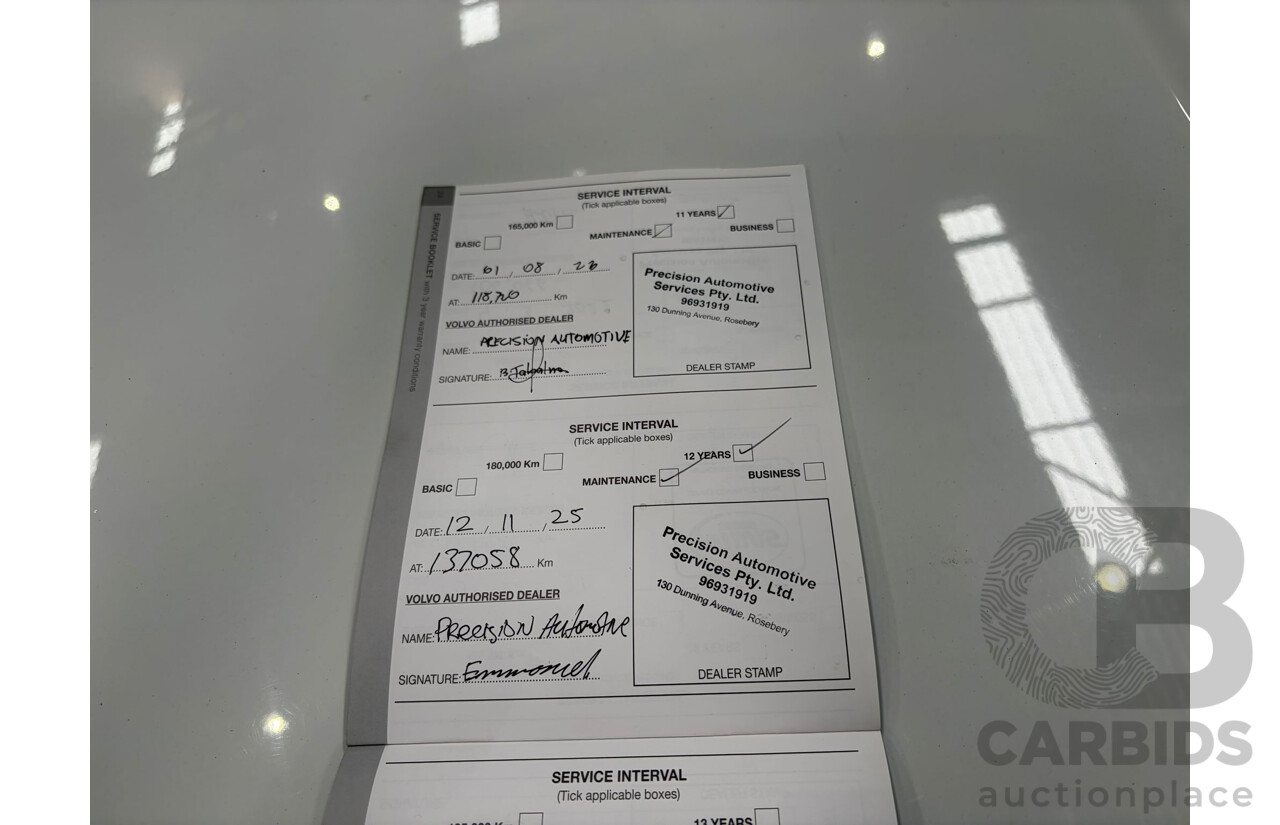 SERVICE BOOKLET with 3 year warranty conditions
SERVICE INTERVAL
(Tick applicable boxes)
165,000 Km
11 YEARS
BASIC
MAINTENANCE
BUSINESS
DATE: 01 / 08 / 23
AT: 118,720 Km
VOLVO AUTHORISED DEALER
NAME: PRECISION AUTOMOTIVE
SIGNATURE:
Precision Automotive
Services Pty. Ltd.
96931919
130 Dunning Avenue, Rosebery
DEALER STAMP
SERVICE INTERVAL
(Tick applicable boxes)
180,000 Km
12 YEARS
BASIC
MAINTENANCE
BUSINESS
DATE: 12 / 11 / 25
AT: 137058 Km
VOLVO AUTHORISED DEALER
NAME: PRECISION Automotive
SIGNATURE: Emmanuel
Precision Automotive
Services Pty. Ltd.
96931919
130 Dunning Avenue, Rosebery
DEALER STAMP
SERVICE INTERVAL
(Tick applicable boxes)
13 YEARS
CB
CARBIDS
auctionplace